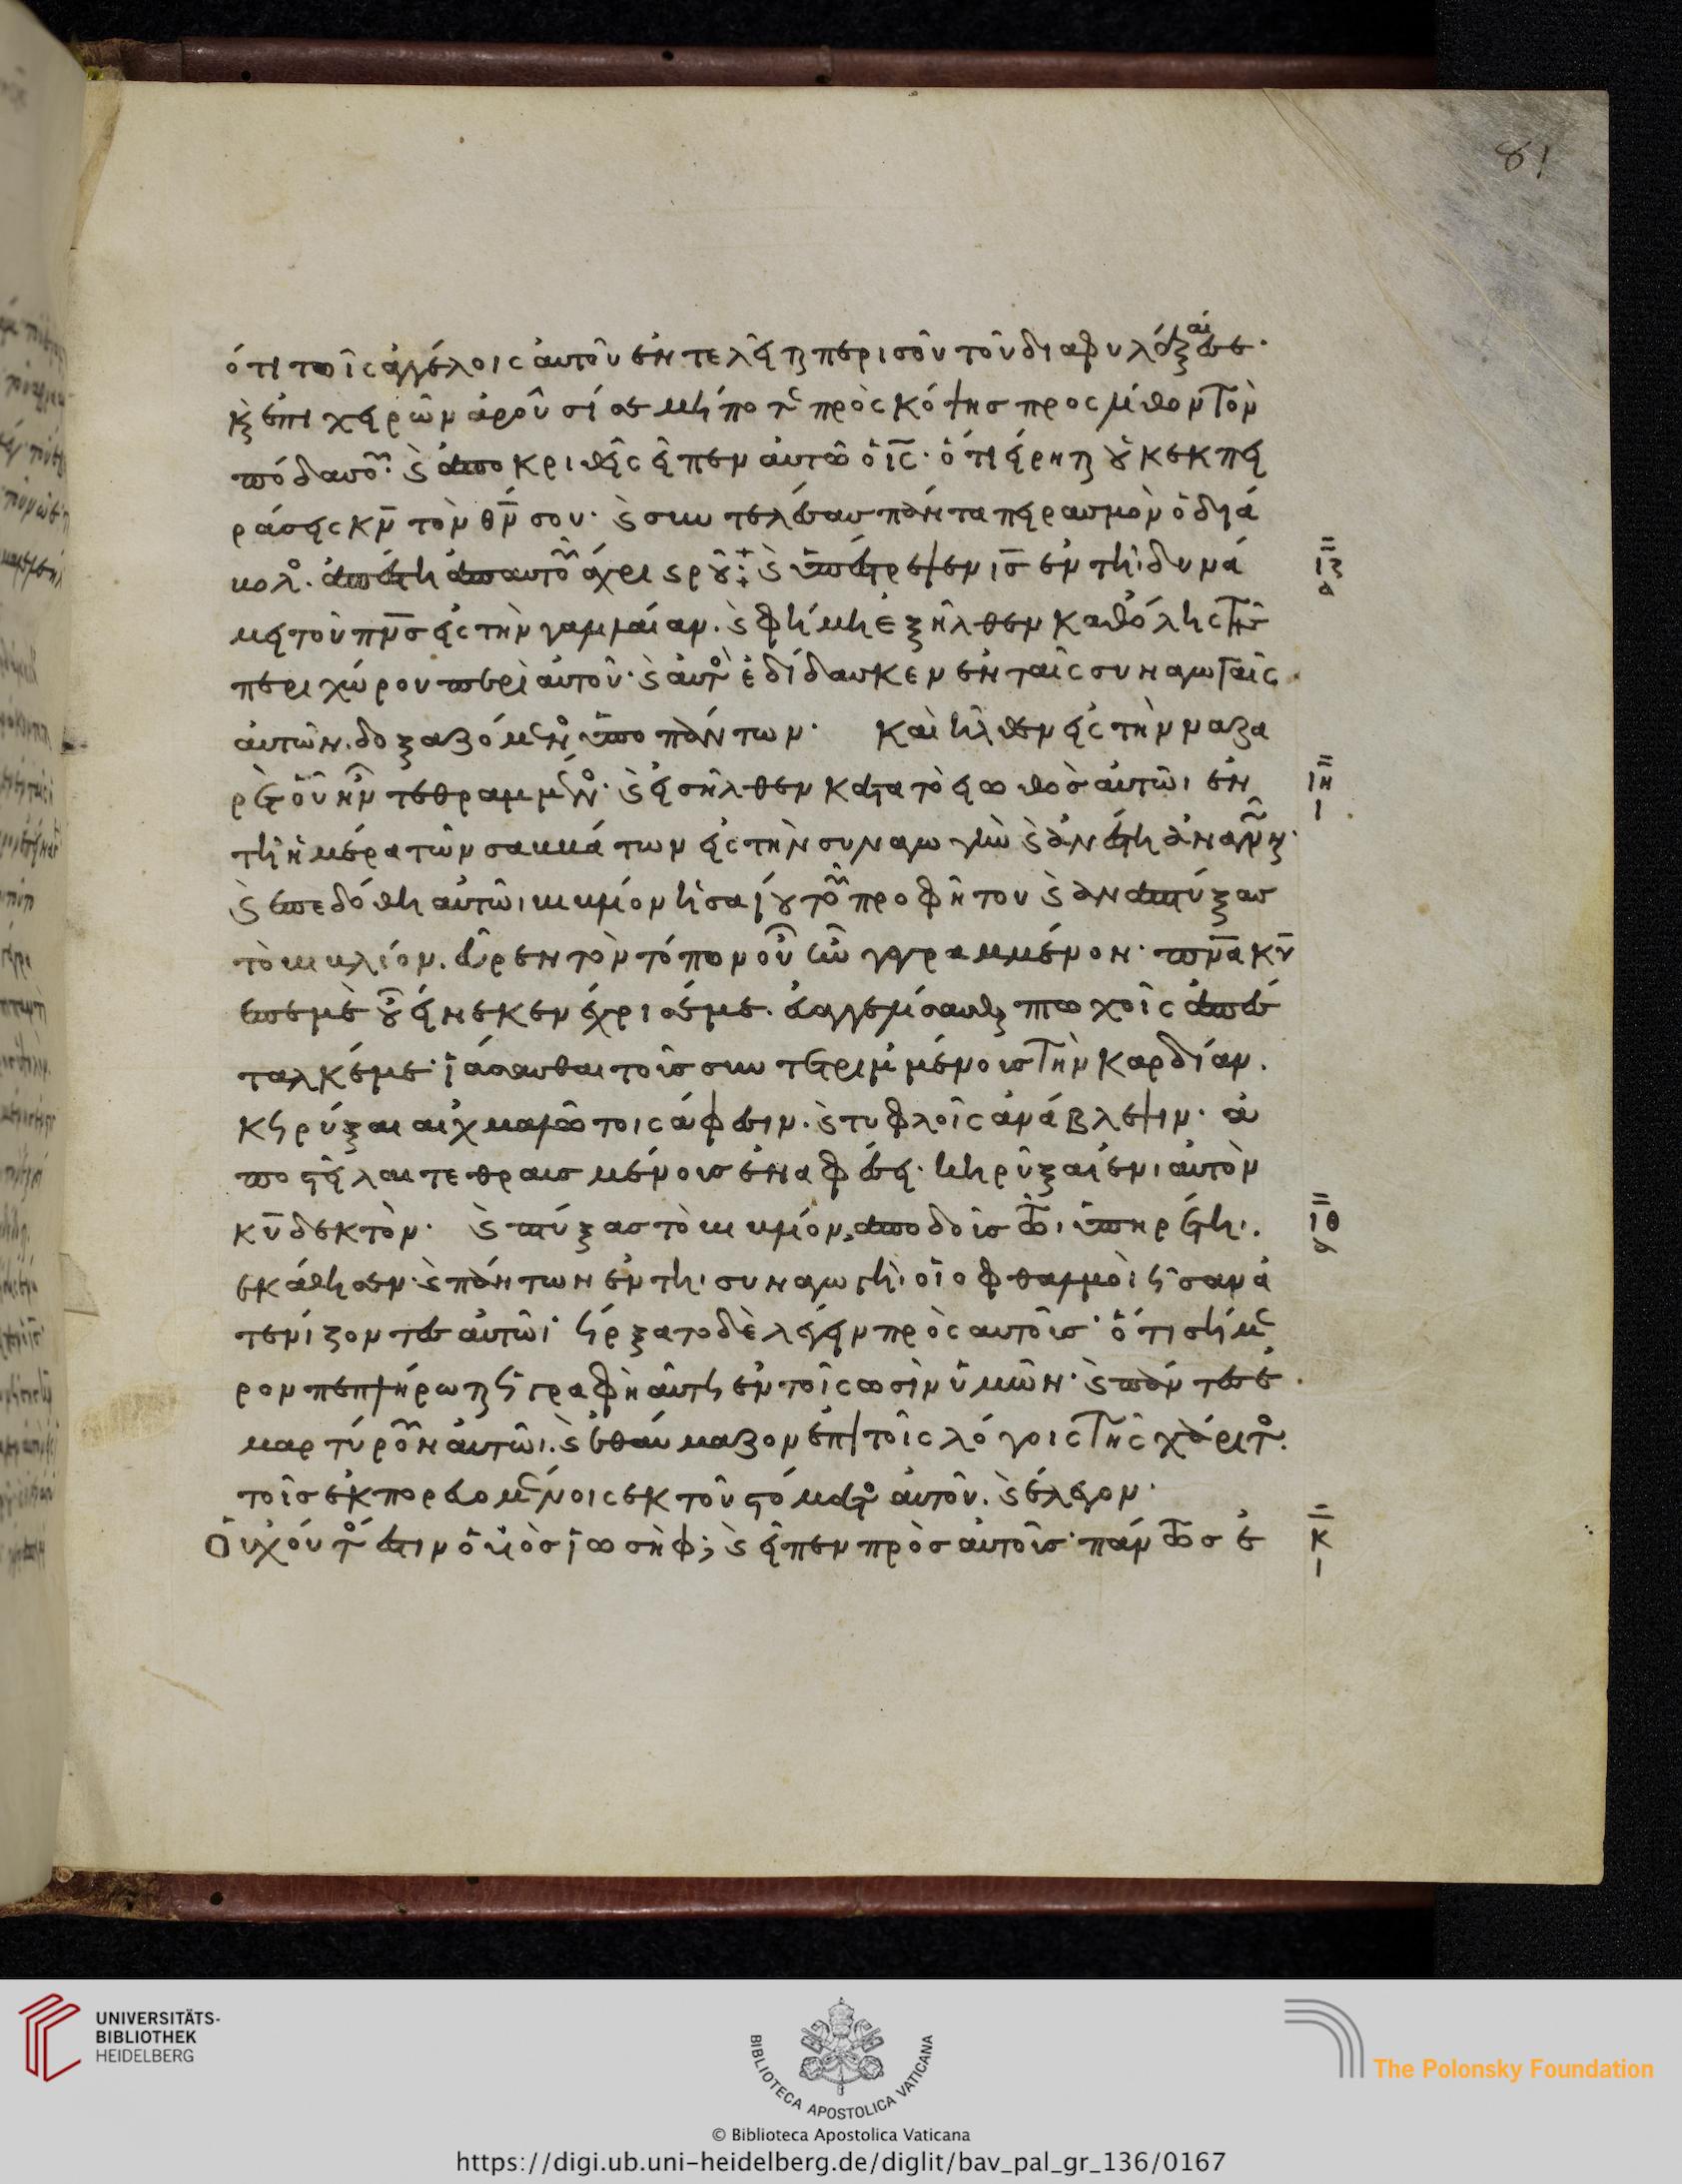 81
ότι τοῖς ἀγγέλοις αὐτοῦ ἐντελεῖται περὶ σοῦ τοῦ διαφυλάξαι σε·
κ ἐπὶ χειρῶν ἀροῦσί σε μήποτε πρὸς κόψης προς λίθον τὸν
πόδα σου· κ ἀποκριθεὶς εἶπεν αὐτῶ ὁ ις· ὅτι είρηται οὐκ εκπει
ράσεις κν τὸν θν σου· κ συντελέσας πάντα πειρασμὸν ὁ διά
βολος. ἀπέστη ἀπ αυτοῦ ἄχρι κρου κ ὑπέστρεψεν ις ἐν τῆ δυνά
μει τοῦ πνς εἰς τὴν γαλιλαίαν. κ φήμη ἐξῆλθεν καθόλης τῆς
περιχώρου περὶ αὐτοῦ· κ αὐτὸς ἐδίδασκεν ἐν ταῖς συναγωγαῖς
αὐτῶν. δοξαζόμενος ὑπο πάντων· Καὶ ἦλθεν εἰς τὴν ναζα
ρὲτ οὗ ἦν τεθραμμένος· κ εἰσῆλθεν κατα τὸ εἰωθὸς αὐτῶι ἐν
τῆ ἡμέρα τῶν σαββάτων εἰς τὴν συναγωγὴν κ ἀνέστη ἀναγνῶναι·
κ ἐπεδόθη αὐτῶι βιβλίον ἡσαΐου τοῦ προφήτου κ ἀναπτύξας
τὸ βιβλίον. εὗρεν τὸν τόπον οὗ ἦν γεγραμμένον· πνα κυ
επ εμὲ οὗ εἵνεκεν έχρισέ με. εὐαγγελίσασθαι πτωχοῖς ἀπέ
σταλκέ με· ἰάσασθαι τοῖς συντετριμμένοις τὴν καρδίαν.
κηρύξαι αἰχμαλώτοις άφεσιν. κ τυφλοῖς ἀνάβλεψιν· ἀ
ποστεῖλαι τεθραυσμένοις ἐν αφέσει· κηρῦξαι ἐνιαυτὸν
κυ δεκτὸν· κ πτύξας τὸ βιβλίον, αποδοὺς τῶι ὑπηρέτη.
εκάθησεν· κ πάντων ἐν τῆ συναγωγῆ οἱ οφθαλμοὶ ἦσαν ἀ
τενίζοντες αὐτῶι· ἤρξατο δὲ λέγειν πρὸς αυτοῖς· ὅτι σήμε
ρον πεπλήρωται ἡ γραφὴ αὕτη ἐν τοῖς ωσὶν ὑμῶν· κ πάντες ἐ
μαρτύρουν αὐτῶι. κ ἐθαύμαζον ἐπὶ τοῖς λόγοις τῆς χάριτος.
τοῖς ἐκπορευομένοις εκ τοῦ στόματος αὐτοῦ. κ έλεγον·
Οὐχ ούτός ἐστιν ὁ υἱὸς ἰωσὴφ; κ εἶπεν πρὸς αὐτοῖς· πάντως ἐ
ιζ
α
ιη
ι
ιθ
α
κ
ι
UNIVERSITÄTS-
BIBLIOTHEK
HEIDELBERG
BIBLIOTECA APOSTOLICA VATICANA
© Biblioteca Apostolica Vaticana
The Polonsky Foundation
https://digi.ub.uni-heidelberg.de/diglit/bav_pal_gr_136/0167